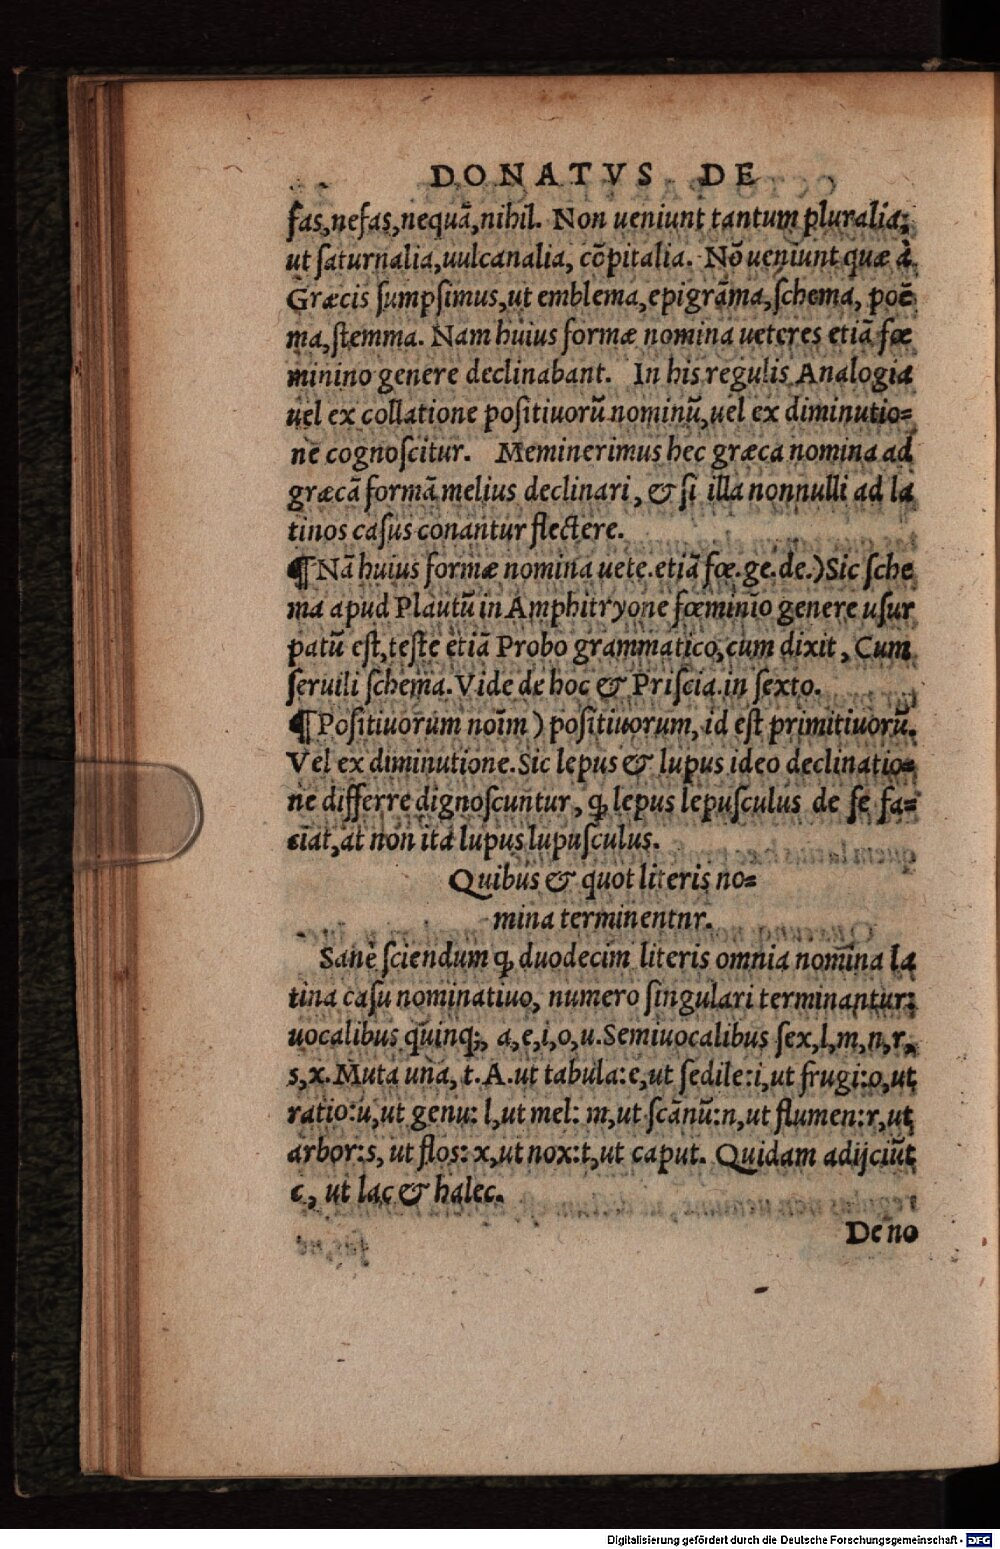 DONATVS DE
fas,nefas,nequā,nihil. Non ueniunt tantum pluralia;
ut ſaturnalia,uulcanalia, cōpitalia. Nō ueniunt quæ à
Græcis ſumpſimus,ut emblema,epigrāma,ſchema, poē
ma,ſtemma. Nam huius formæ nomina ueteres etiā fœ
minino genere declinabant. In his regulis Analogia
uel ex collatione poſitiuorū nominū,uel ex diminutio=
ne cognoſcitur. Meminerimus hec græca nomina ad
græcā formā melius declinari, & ſi illa nonnulli ad la
tinos caſus conantur flectere.
¶Nā huius formæ nomina uete.etiā fœ.ge.de.)Sic ſche
ma apud Plautū in Amphitryone fœminīo genere uſur
patū eſt,teſte etiā Probo grammatico,cum dixit, Cum
ſeruili ſchema.Vide de hoc & Priſcia.in ſexto.
¶Poſitiuorum noīm ) poſitiuorum, id eſt primitiuorū.
Vel ex diminutione.Sic lepus & lupus ideo declinatio=
ne differre dignoſcuntur, ꝙ lepus lepuſculus de ſe fa=
ciat,at non ita lupus lupuſculus.
Quibus & quot literis no=
mina terminentnr.
Sanè ſciendum ꝙ duodecim literis omnia nomina la
tina caſu nominatiuo, numero ſingulari terminantur:
uocalibus quinq;, a,e,i,o,u.Semiuocalibus ſex,l,m,n,r,
s,x.Muta una, t.A.ut tabula:e,ut ſedile:i,ut frugi:o,ut
ratio:u,ut genu: l,ut mel: m,ut ſcānū:n,ut flumen:r,ut
arbor:s, ut flos: x,ut nox:t,ut caput. Quidam adijciūt
c, ut lac & halec.
De no
Digitalisierung gefördert durch die Deutsche Forschungsgemeinschaft - DFG